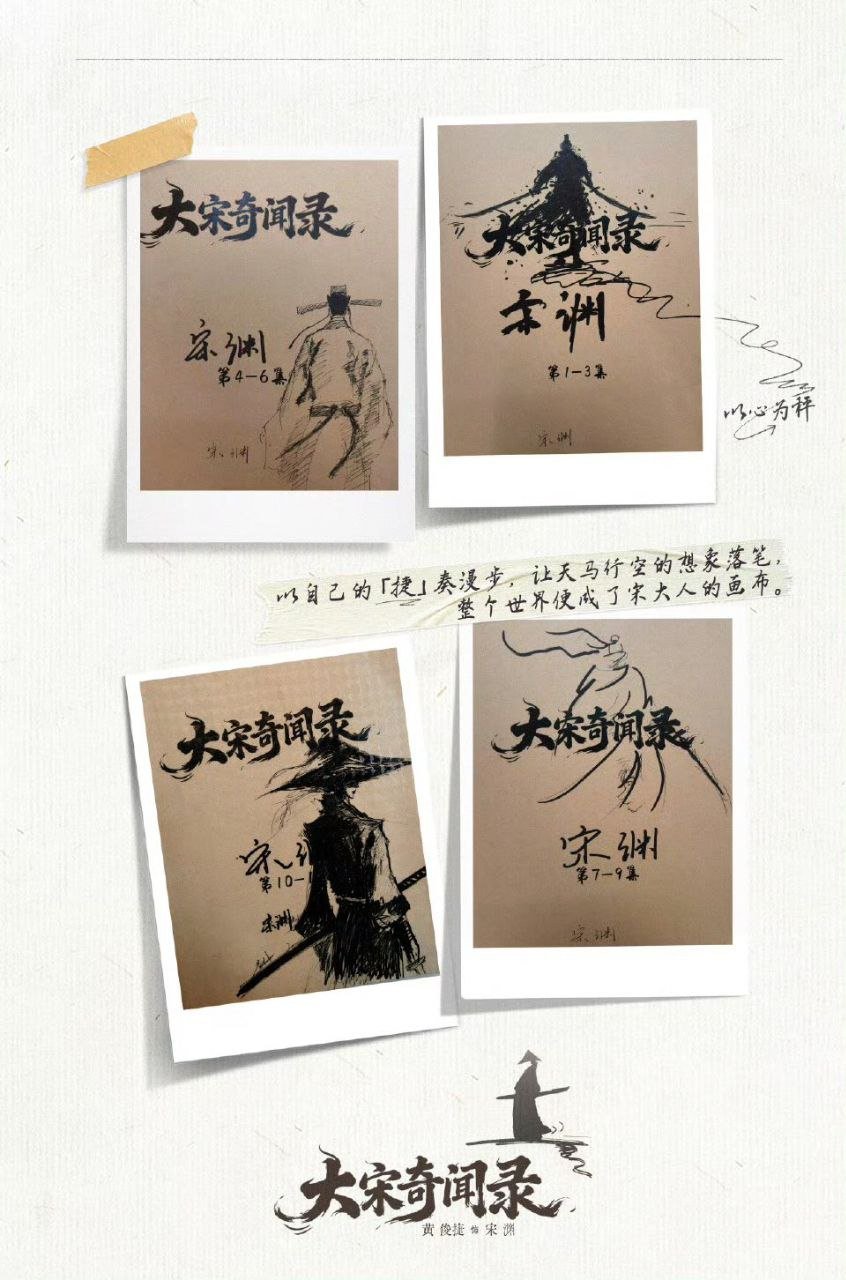 大宋奇闻录
宋渊
第4－6集
宋渊
大宋奇闻录
宋渊
第1－3集
宋渊
以心为秤
以自己的「捷」奏漫步，让天马行空的想象落笔，
整个世界便成了宋大人的画布。
大宋奇闻录
宋
第10－1
宋渊
大宋奇闻录
宋渊
第7－9集
宋渊
大宋奇闻录
黄俊捷 饰 宋渊